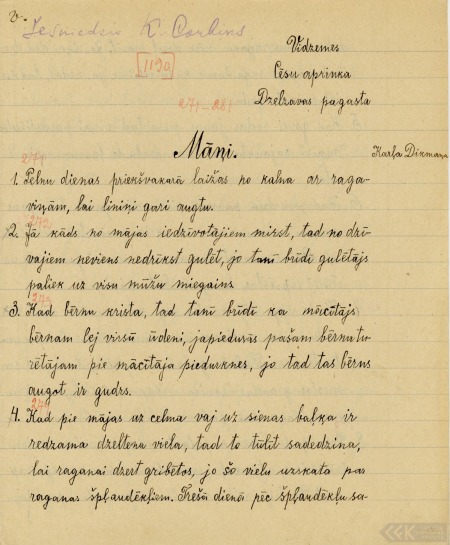 v.
Iesniedzis K. Corbins
[1190]
Vidzemes
Cēsu apriņka
Dzelzavas pagasta
271–281
Māņi.
Karļa Dikmaņa
271
1. Pelnu dienas priekšvakarā laižas no kalna ar raga-
viņām, lai liniņi gari augtu.
2. Jā kāds no mājas iedzīvotājiem mirst, tad no dzī-
vajiem neviens nedrīkst gulēt, jo tanī brīdī gulētājs
paliek uz visu mūžu miegains.
3. Kad bērnu krista, tad tanī brīdī ka mācītājs
bērnam lej virsū ūdeni, japiedurās pašam bērnu tu-
rētājam pie mācītāja piedurknes, jo tad tas bērns
augot ir gudrs.
4. Kad pie mājas uz celma vaj uz sienas baļķa ir
redzama dzeltena viela, tad to tūlīt sadedzina,
lai raganai dzert gribētos, jo šo vielu uzskata par
raganas špļaudēkļiem. Trešā dienā pēc špļaudēkļu sa-